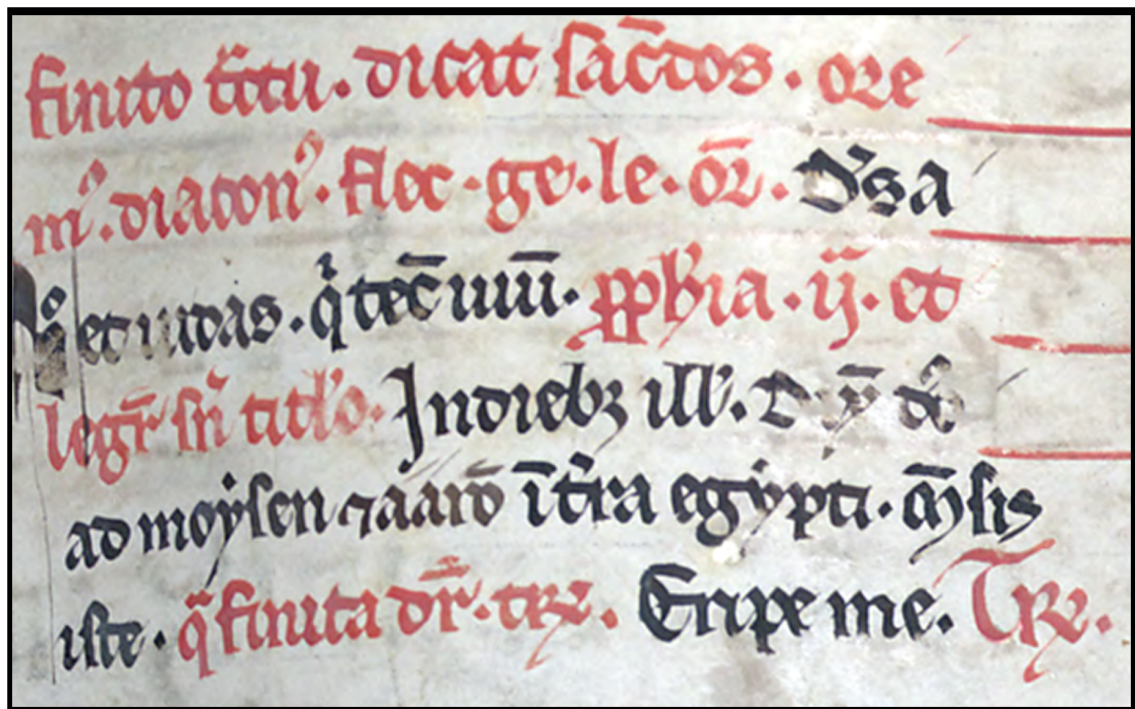 finito t̄ctu. dicat sac̄dos. ore
mꝰ. diaconꝰ. flec. ge. le. or̄. D's a
q° et iudas. q' tec̄ uiuī. ꝓph'ia. ij. et
legr̄ sn̄ titl'o. In dieb; ill'. D d
ad moẏsen ⁊ aaro᷑ ī t'ra egẏpti. m̄sis
iste. q̄ finita dr̄. trꝫ. Eripe me. Trꝫ.